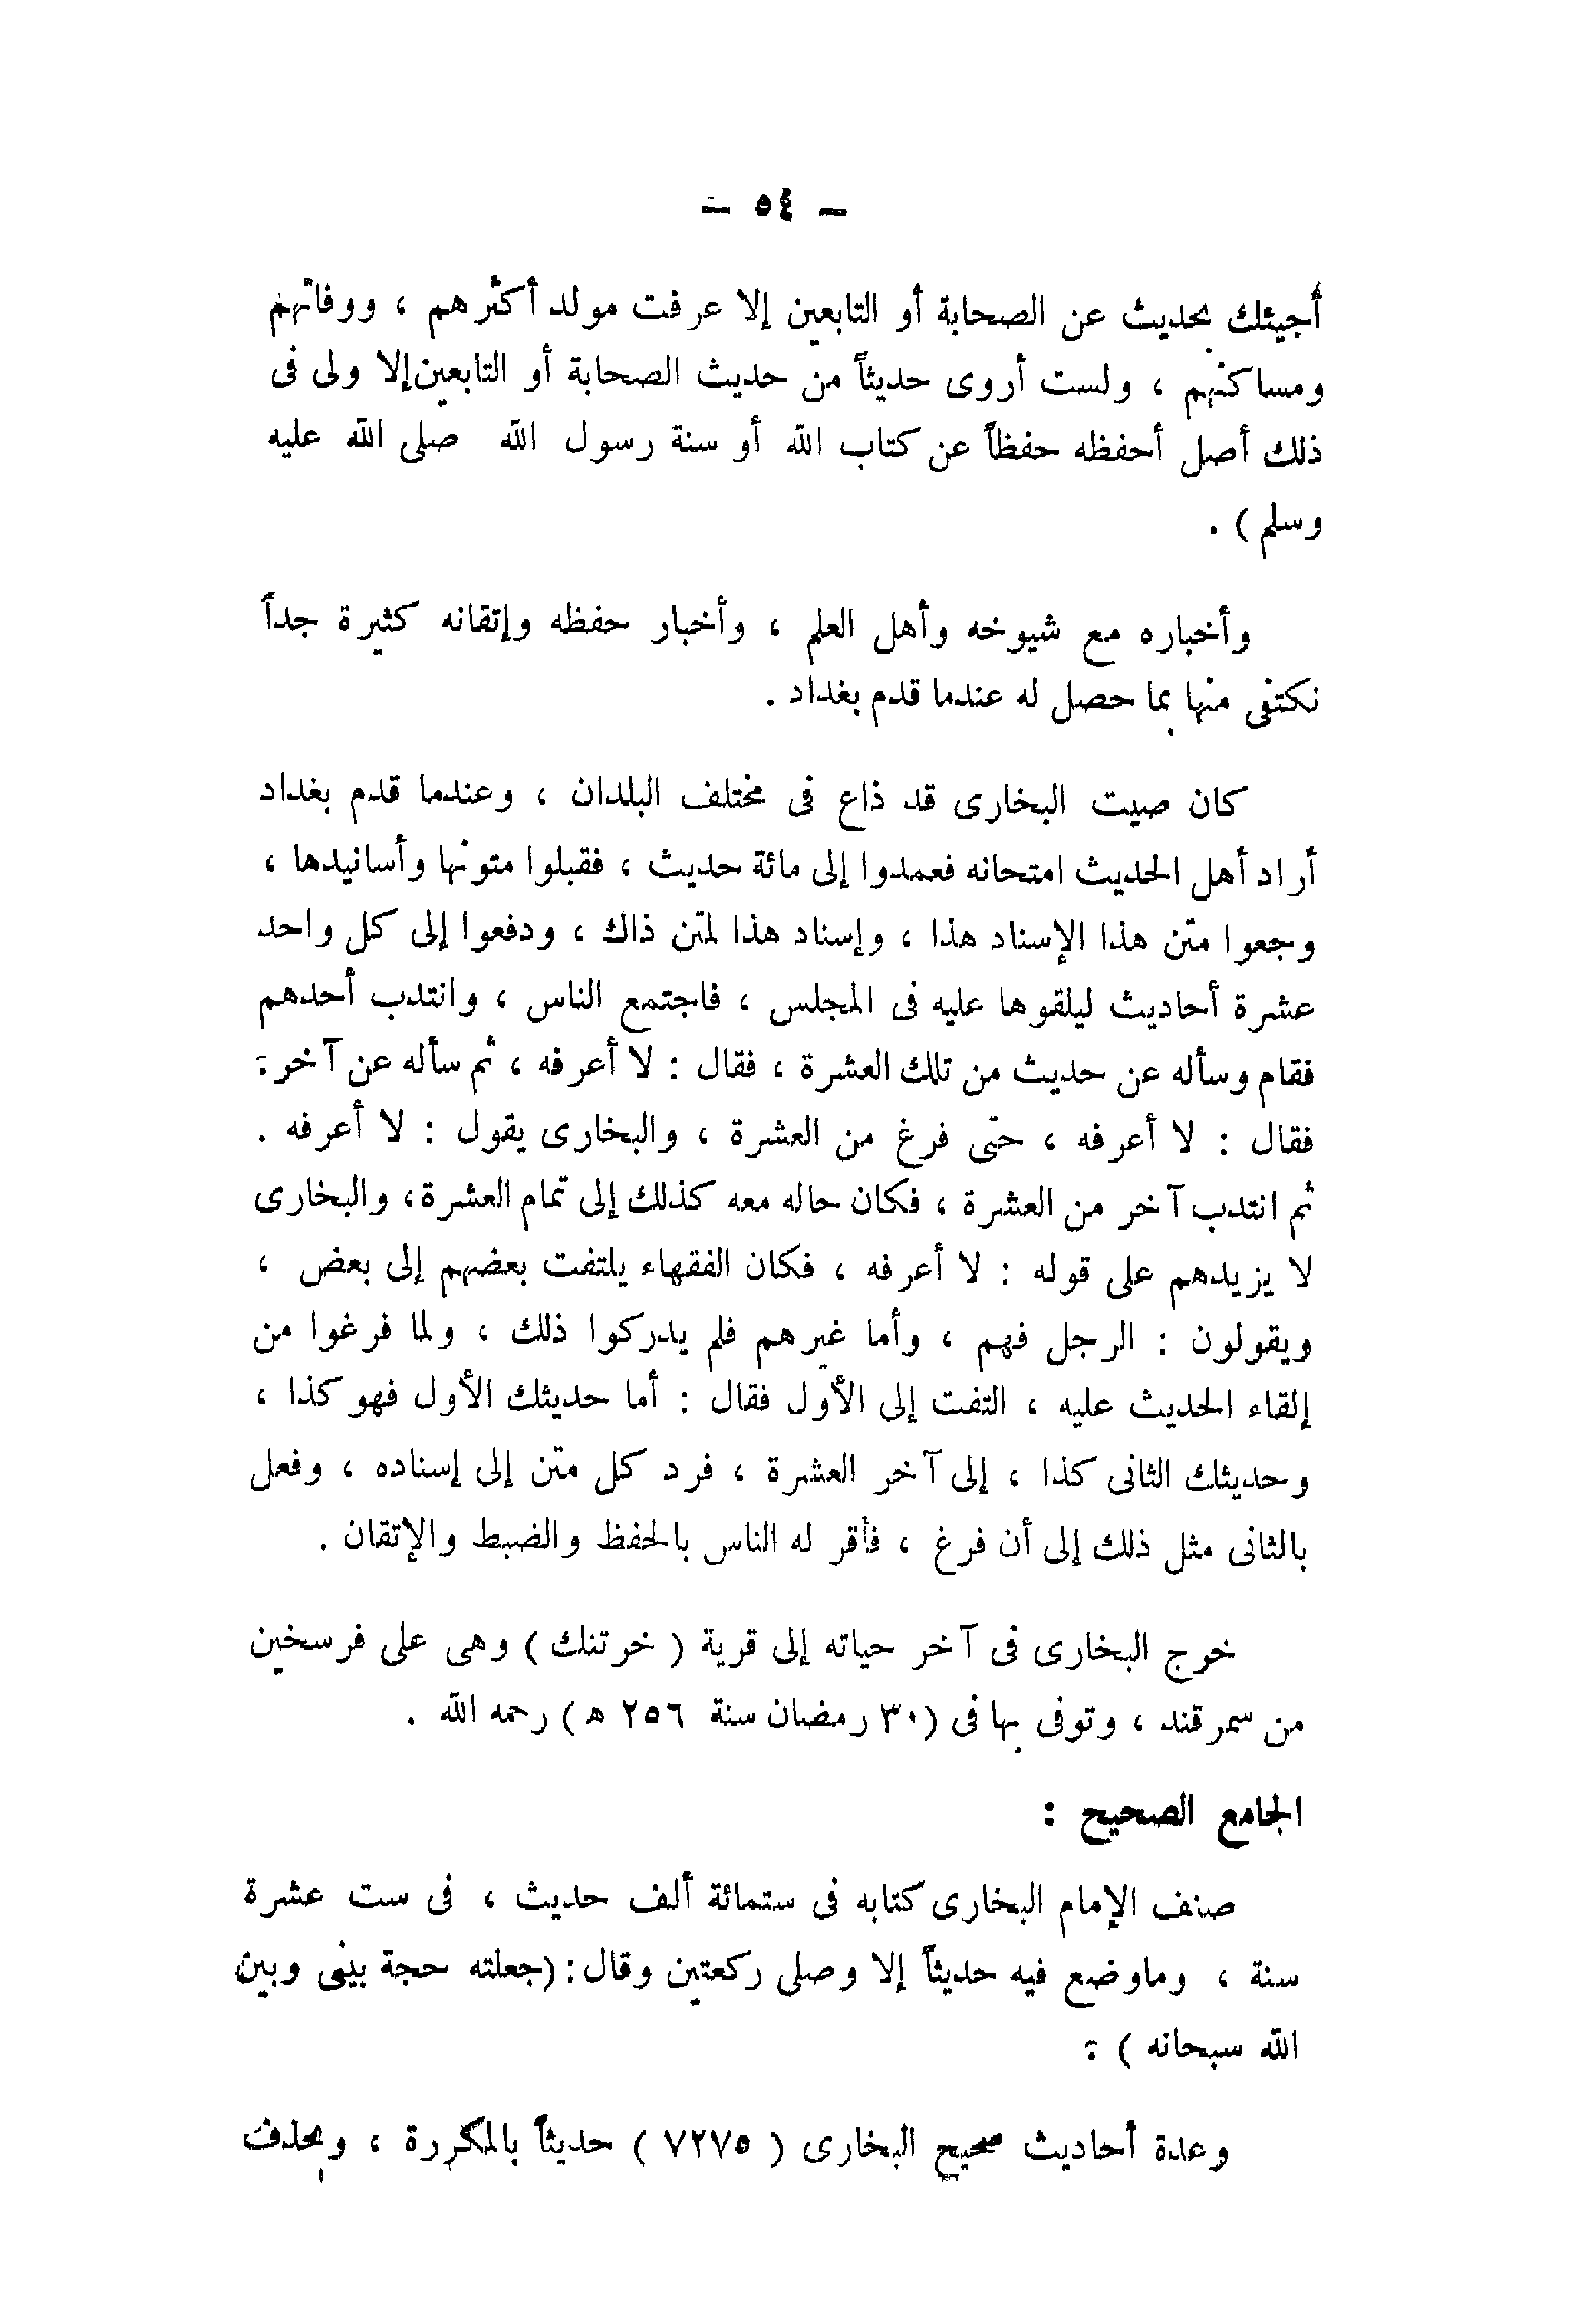 – ٥٤ –
أجيئك بحديث عن الصحابة أو التابعين إلا عرفت مولد أكثرهم ، ووفاتهم
ومساكنهم ، ولست أروى حديثاً من حديث الصحابة أو التابعين إلا ولى فى
ذلك أصل أحفظه حفظاً عن كتاب الله أو سنة رسول الله صلى الله عليه
وسلم ) .
وأخباره مع شيوخه وأهل العلم ، وأخبار حفظه وإتقانه كثيرة جداً
نكتفى منها بما حصل له عندما قدم بغداد .
كان صيت البخارى قد ذاع فى مختلف البلدان ، وعندما قدم بغداد
أراد أهل الحديث امتحانه فعمدوا إلى مائة حديث ، فقبلوا متونها وأسانيدها ،
وجعوا متن هذا الإسناد هذا ، وإسناد هذا لمتن ذاك ، ودفعوا إلى كل واحد
عشرة أحاديث ليلقوها عليه فى المجلس ، فاجتمع الناس ، وانتدب أحدهم
فقام وسأله عن حديث من تلك العشرة ، فقال : لا أعرفه ، ثم سأله عن آخر :
فقال : لا أعرفه ، حتى فرغ من العشرة ، والبخارى يقول : لا أعرفه .
ثم انتدب آخر من العشرة ، فكان حاله معه كذلك إلى تمام العشرة ، والبخارى
لا يزيدهم على قوله : لا أعرفه ، فكان الفقهاء يلتفت بعضهم إلى بعض ،
ويقولون : الرجل فهم ، وأما غيرهم فلم يدركوا ذلك ، ولما فرغوا من
إلقاء الحديث عليه ، التفت إلى الأول فقال : أما حديثك الأول فهو كذا ،
وحديثك الثانى كذا ، إلى آخر العشرة ، فرد كل متن إلى إسناده ، وفعل
بالثانى مثل ذلك إلى أن فرغ ، فأقر له الناس بالحفظ والضبط والإتقان .
خرج البخارى فى آخر حياته إلى قرية ( خرتنك ) وهى على فرسخين
من سمرقند ، وتوفى بها فى (٣٠ رمضان سنة ٢٥٦ ه ) رحمه الله .
الجامع الصحيح :
صنف الإمام البخارى كتابه فى ستمائة ألف حديث ، فى ست عشرة
سنة ، وماوضع فيه حديثاً إلا وصلى ركعتين وقال : (جعلته حجة بينى وبين
الله سبحانه ) :
وعدة أحاديث صحيح البخارى ( ٧٢٧٥ ) حديثاً بالمكررة ، وبحذف